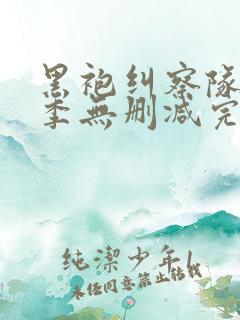 黑袍纠察队
季無删减完
纯潔少年l
未经同意禁止转载